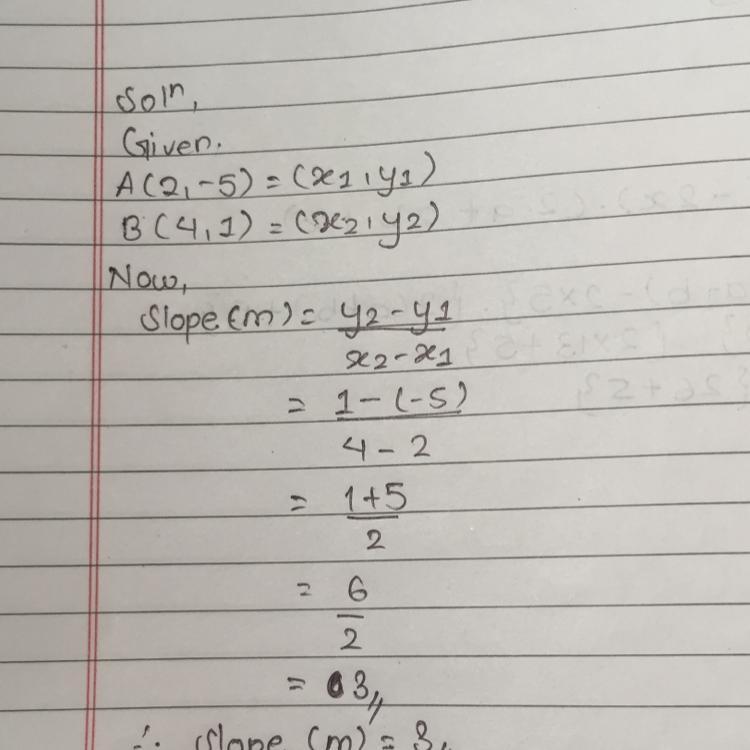 Soln,
Given.
A(2,-5) = (x1,y1)
B(4,1) = (x2,y2)
Now,
Slope(m) = y2-y1
x2-x1
= 1-(-5)
4-2
= 1+5
2
= 6
2
= 3//
∴ Slope (m) = 3